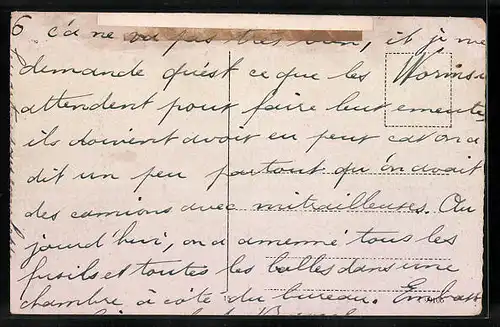 6 c'a ne va pas très bien, et je me
demande qu'est ce que les
attendent pour faire leur emeute,
ils doivent avoir eu peur car on a
dit un peu partout qu'on avait
des camions avec mitrailleuses. Au
jourd'hui, on a amenné tous les
fusils et toutes les balles dans une
chambre à côté du bureau.